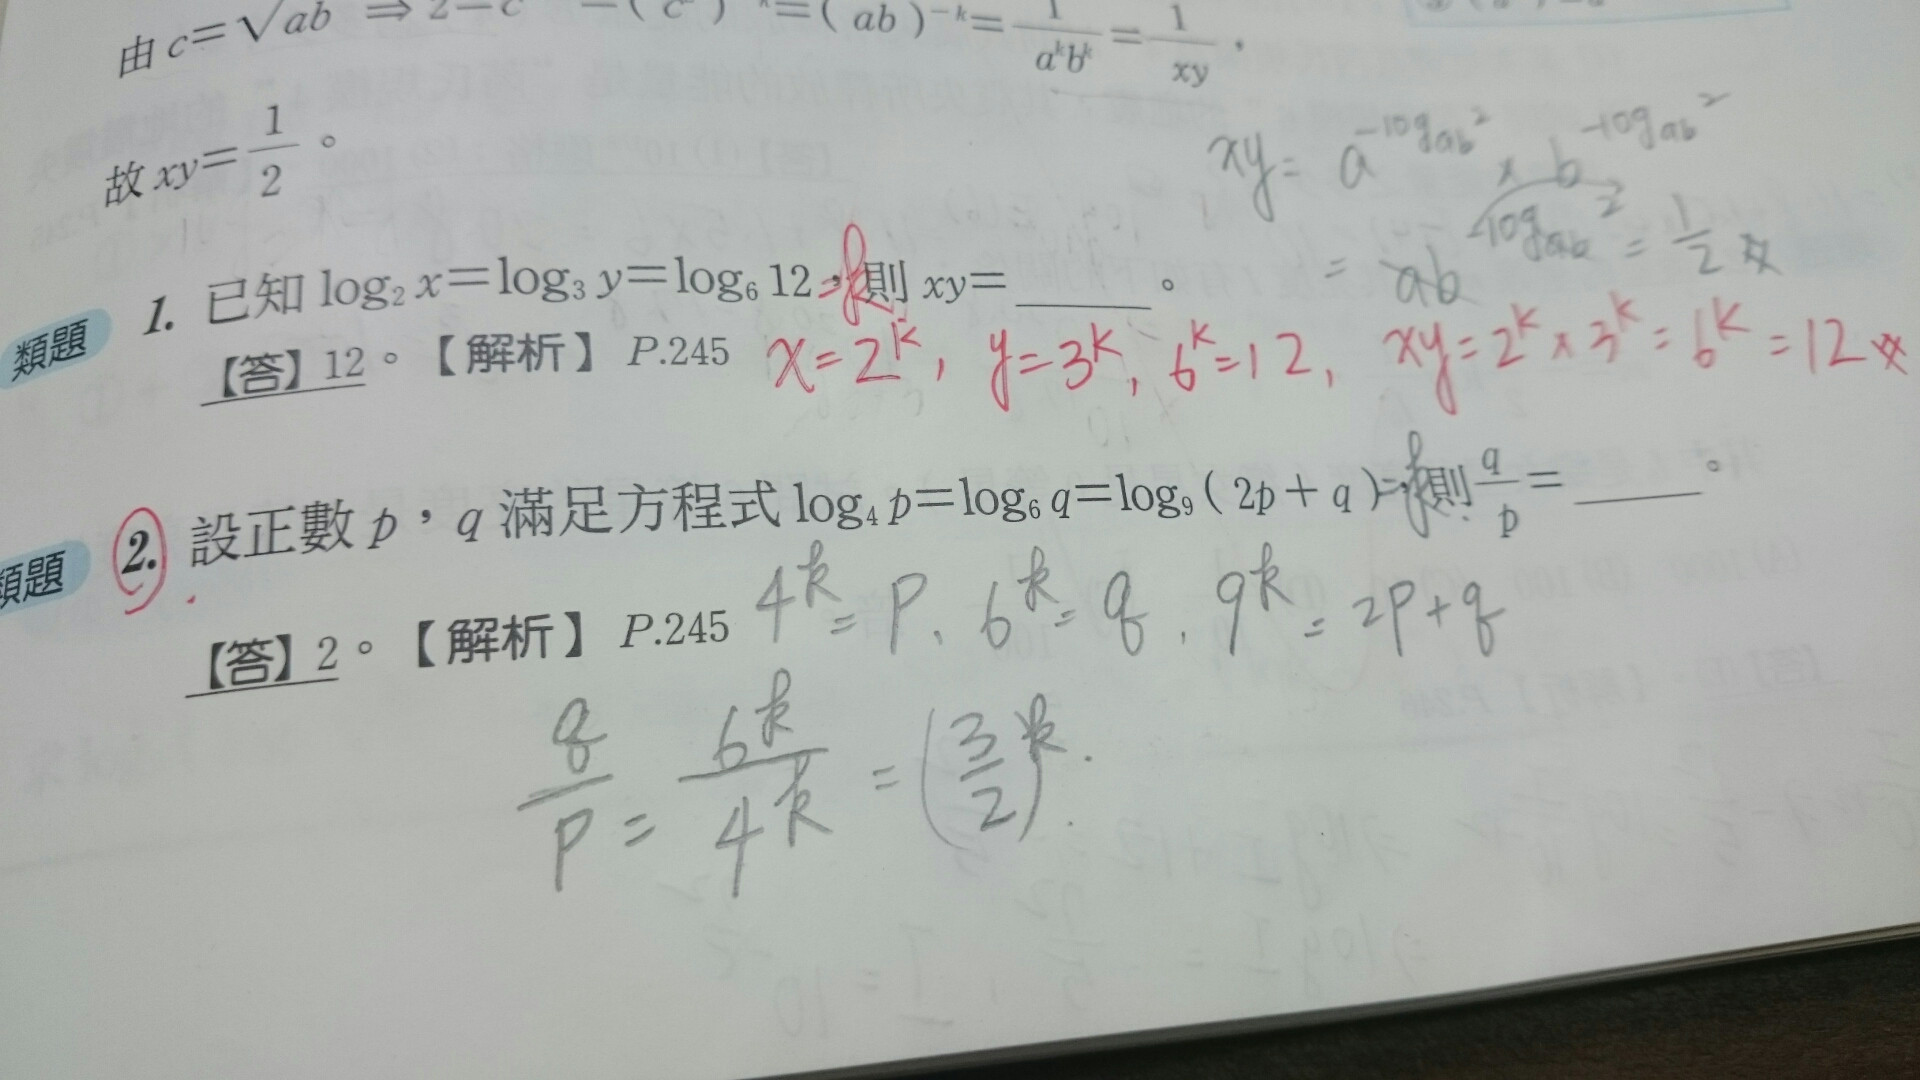 由 c=√ab ⇒ =(ab)⁻ᵏ=1/aᵏbᵏ=1/xy ,
故 xy=1/2。
xy= a^-log_ab 2 × b^-log_ab 2
= ab^-log_ab 2 = 1/2 ※
類題 1. 已知 log₂ x=log₃ y=log₆ 12 =k 則 xy=______。
【答】12。【解析】P.245 x=2ᵏ, y=3ᵏ, 6ᵏ=12, xy=2ᵏ×3ᵏ=6ᵏ=12※
類題 2. 設正數 p,q 滿足方程式 log₄ p=log₆ q=log₉(2p+q)=k 則 q/p=______。
【答】2。【解析】P.245 4ᵏ=p、6ᵏ=q、9ᵏ=2p+q
q/p=6ᵏ/4ᵏ=(3/2)ᵏ.